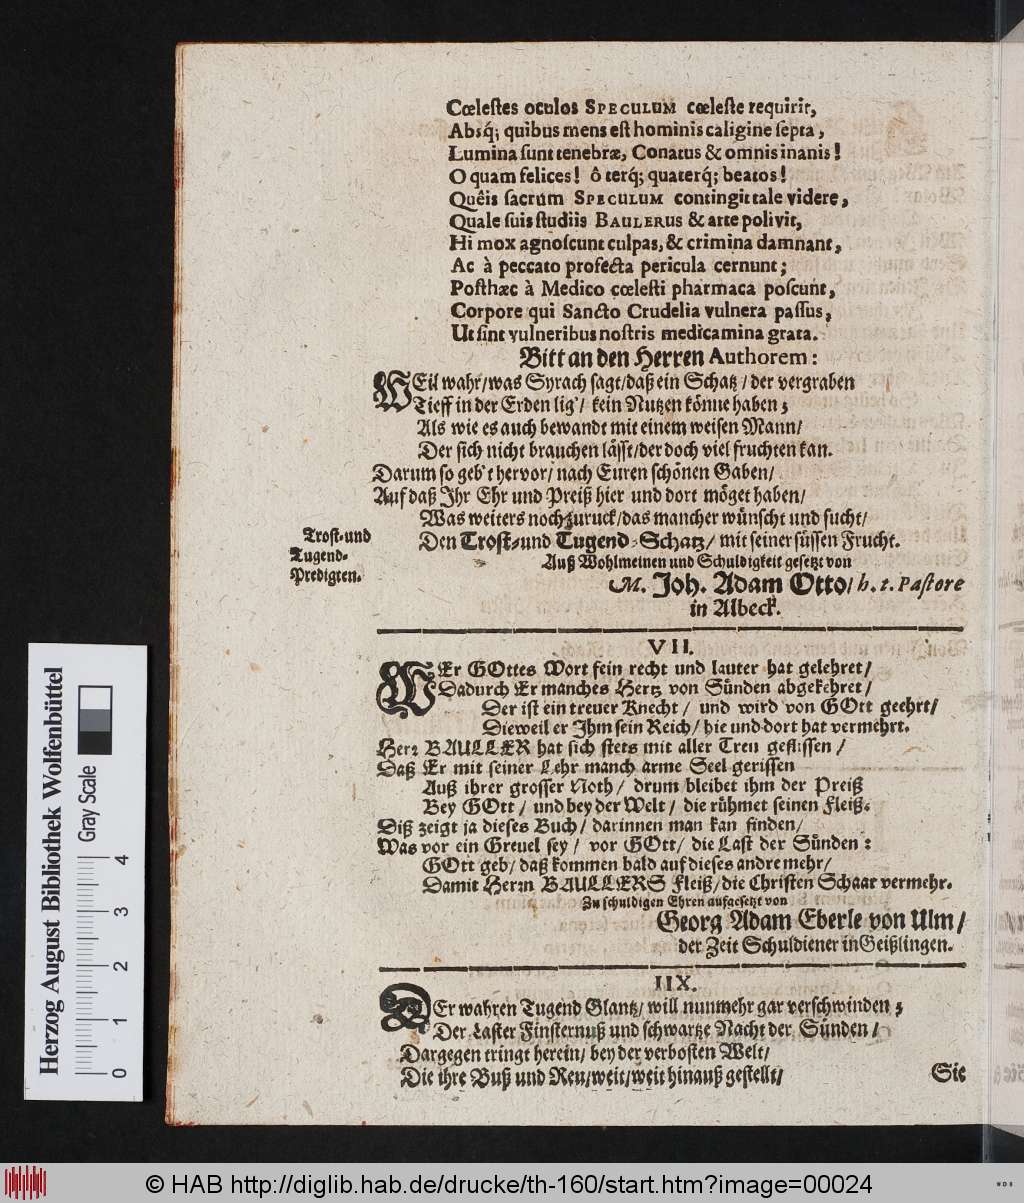 Cœleſtes oculos SPECULUM cœleſte requirit,
Absq́; quibus mens eſt hominis caligine ſepta,
Lumina ſunt tenebræ, Conatus & omnis inanis!
O quam felices! ô terq́; quaterq́; beatos!
Quêis ſacrum SPECULUM contingit tale videre,
Quale ſuis ſtudiis BAULERUS & arte polivit,
Hi mox agnoſcunt culpas, & crimina damnant,
Ac à peccato profecta pericula cernunt;
Poſthæc à Medico cœleſti pharmaca poſcunt,
Corpore qui Sancto Crudelia vulnera paſſus,
Ut ſint vulneribus noſtris medicamina grata.
Bitt an den Herren Authorem:
WEil wahr/was Syrach ſagt/daß ein Schatz/ der vergraben
Tieff in der Erden lig'/ kein Nutzen könne haben;
Als wie es auch bewandt mit einem weiſen Mann/
Der ſich nicht brauchen läſſt/der doch viel fruchten kan.
Darum ſo geb't hervor/ nach Euren ſchönen Gaben/
Auf daß Ihr Ehr und Preiß hier und dort möget haben/
Was weiters noch zuruck/das mancher wünſcht und ſucht/
Den Troſt-und Tugend-Schatz/ mit ſeiner ſüſſen Frucht.
Troſt-und
Tugend-
Predigten.
Auß Wohlmeinen und Schuldigkeit geſetzt von
M. Joh. Adam Otto/ h. t. Paſtore
in Albeck.
VII.
WEr GOttes Wort fein recht und lauter hat gelehret/
Dadurch Er manches Hertz von Sünden abgekehret/
Der iſt ein treuer Knecht/ und wird von GOtt geehrt/
Dieweil er Ihm ſein Reich/ hie und dort hat vermehrt.
Herr BAULLER hat ſich ſtets mit aller Treu gefliſſen/
Daß Er mit ſeiner Lehr manch arme Seel geriſſen
Auß ihrer groſſer Noth/ drum bleibet ihm der Preiß
Bey GOtt/ und bey der Welt/ die rühmet ſeinen Fleiß.
Diß zeigt ja dieſes Buch/ darinnen man kan finden/
Was vor ein Greuel ſey/ vor GOtt/ die Laſt der Sünden:
GOtt geb/ daß kommen bald auf dieſes andre mehr/
Damit Herrn BAULLERS Fleiß/die Chriſten Schaar vermehr.
Zu ſchuldigen Ehren aufgeſetzt von
Georg Adam Eberle von Ulm/
der Zeit Schuldiener in Geißlingen.
IIX.
DEr wahren Tugend Glantz/ will nunmehr gar verſchwinden;
Der Laſter Finſternuß und ſchwartze Nacht der Sünden/
Dargegen tringt herein/ bey der verboſten Welt/
Die ihre Buß und Reu/weit/weit hinauß geſtellt/
Sie
Herzog August Bibliothek Wolfenbüttel
Gray Scale
0 1 2 3 4
© HAB http://diglib.hab.de/drucke/th-160/start.htm?image=00024